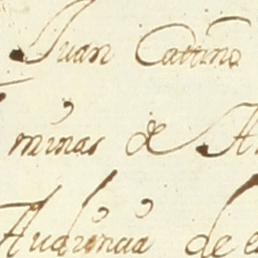 Juan Cattino
minas de A
Audiencia de